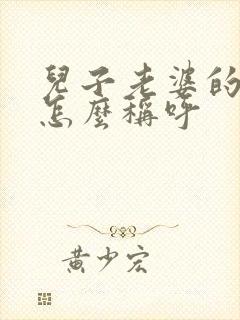 兒子老婆的
怎麼稱呼
黃少宏